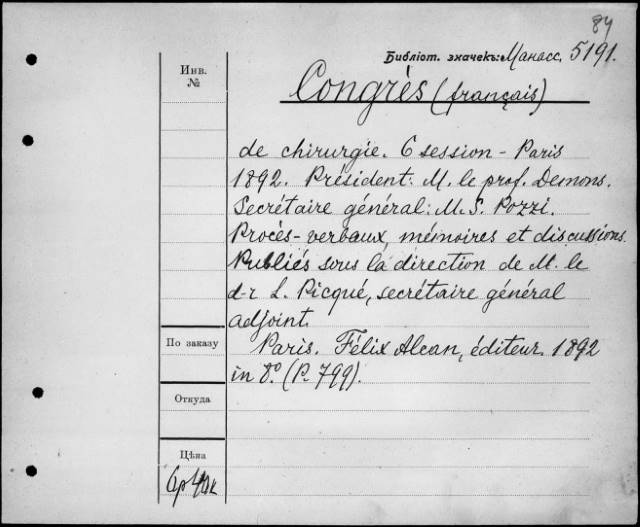 84
Библіот. значекъ: Манасс. 5191.
Инв.
№
Congrès (français)
de chirurgie. 6 session - Paris
1892. Président: M. le prof. Demons.
Secrétaire général: M. S. Pozzi.
Procès-verbaux, mémoires et discussions.
Publiés sous la direction de M. le
d-r L. Picqué, secrétaire général
adjoint.
По заказу
Paris. Félix Alcan, éditeur. 1892
in 8.° (P. 799).
Откуда
Цѣна